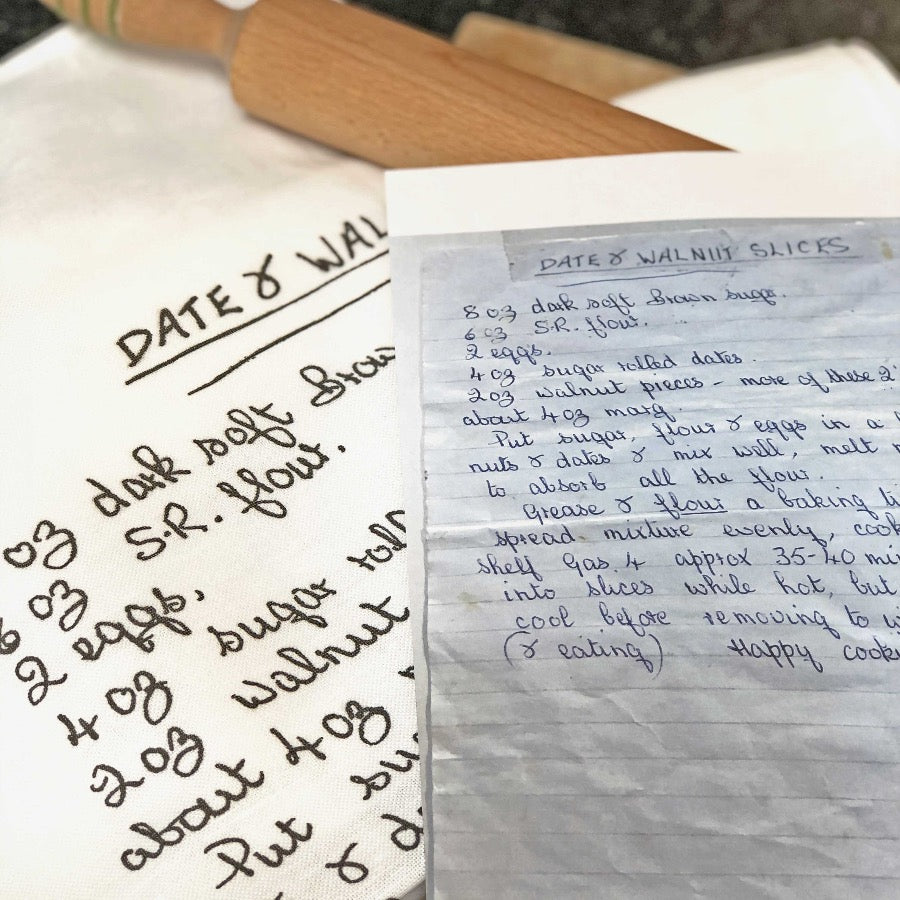 DATE & WAL
oz dark soft Brow
6 oz S.R. flour.
2 eggs.
4 oz sugar roll
2 oz walnut
about 4 oz
Put su
& d
DATE & WALNUT SLICES
8 oz dark soft Brown sugar.
6 oz S.R. flour.
2 eggs.
4 oz sugar rolled dates.
2 oz walnut pieces - more of these 2
about 4 oz marg.
Put sugar, flour & eggs in a
nuts & dates & mix well, melt
to absorb all the flour.
Grease & flour a baking ti
spread mixture evenly, cook
shelf Gas 4 approx 35-40 min
into slices while hot, but
cool before removing to
(& eating) Happy cook